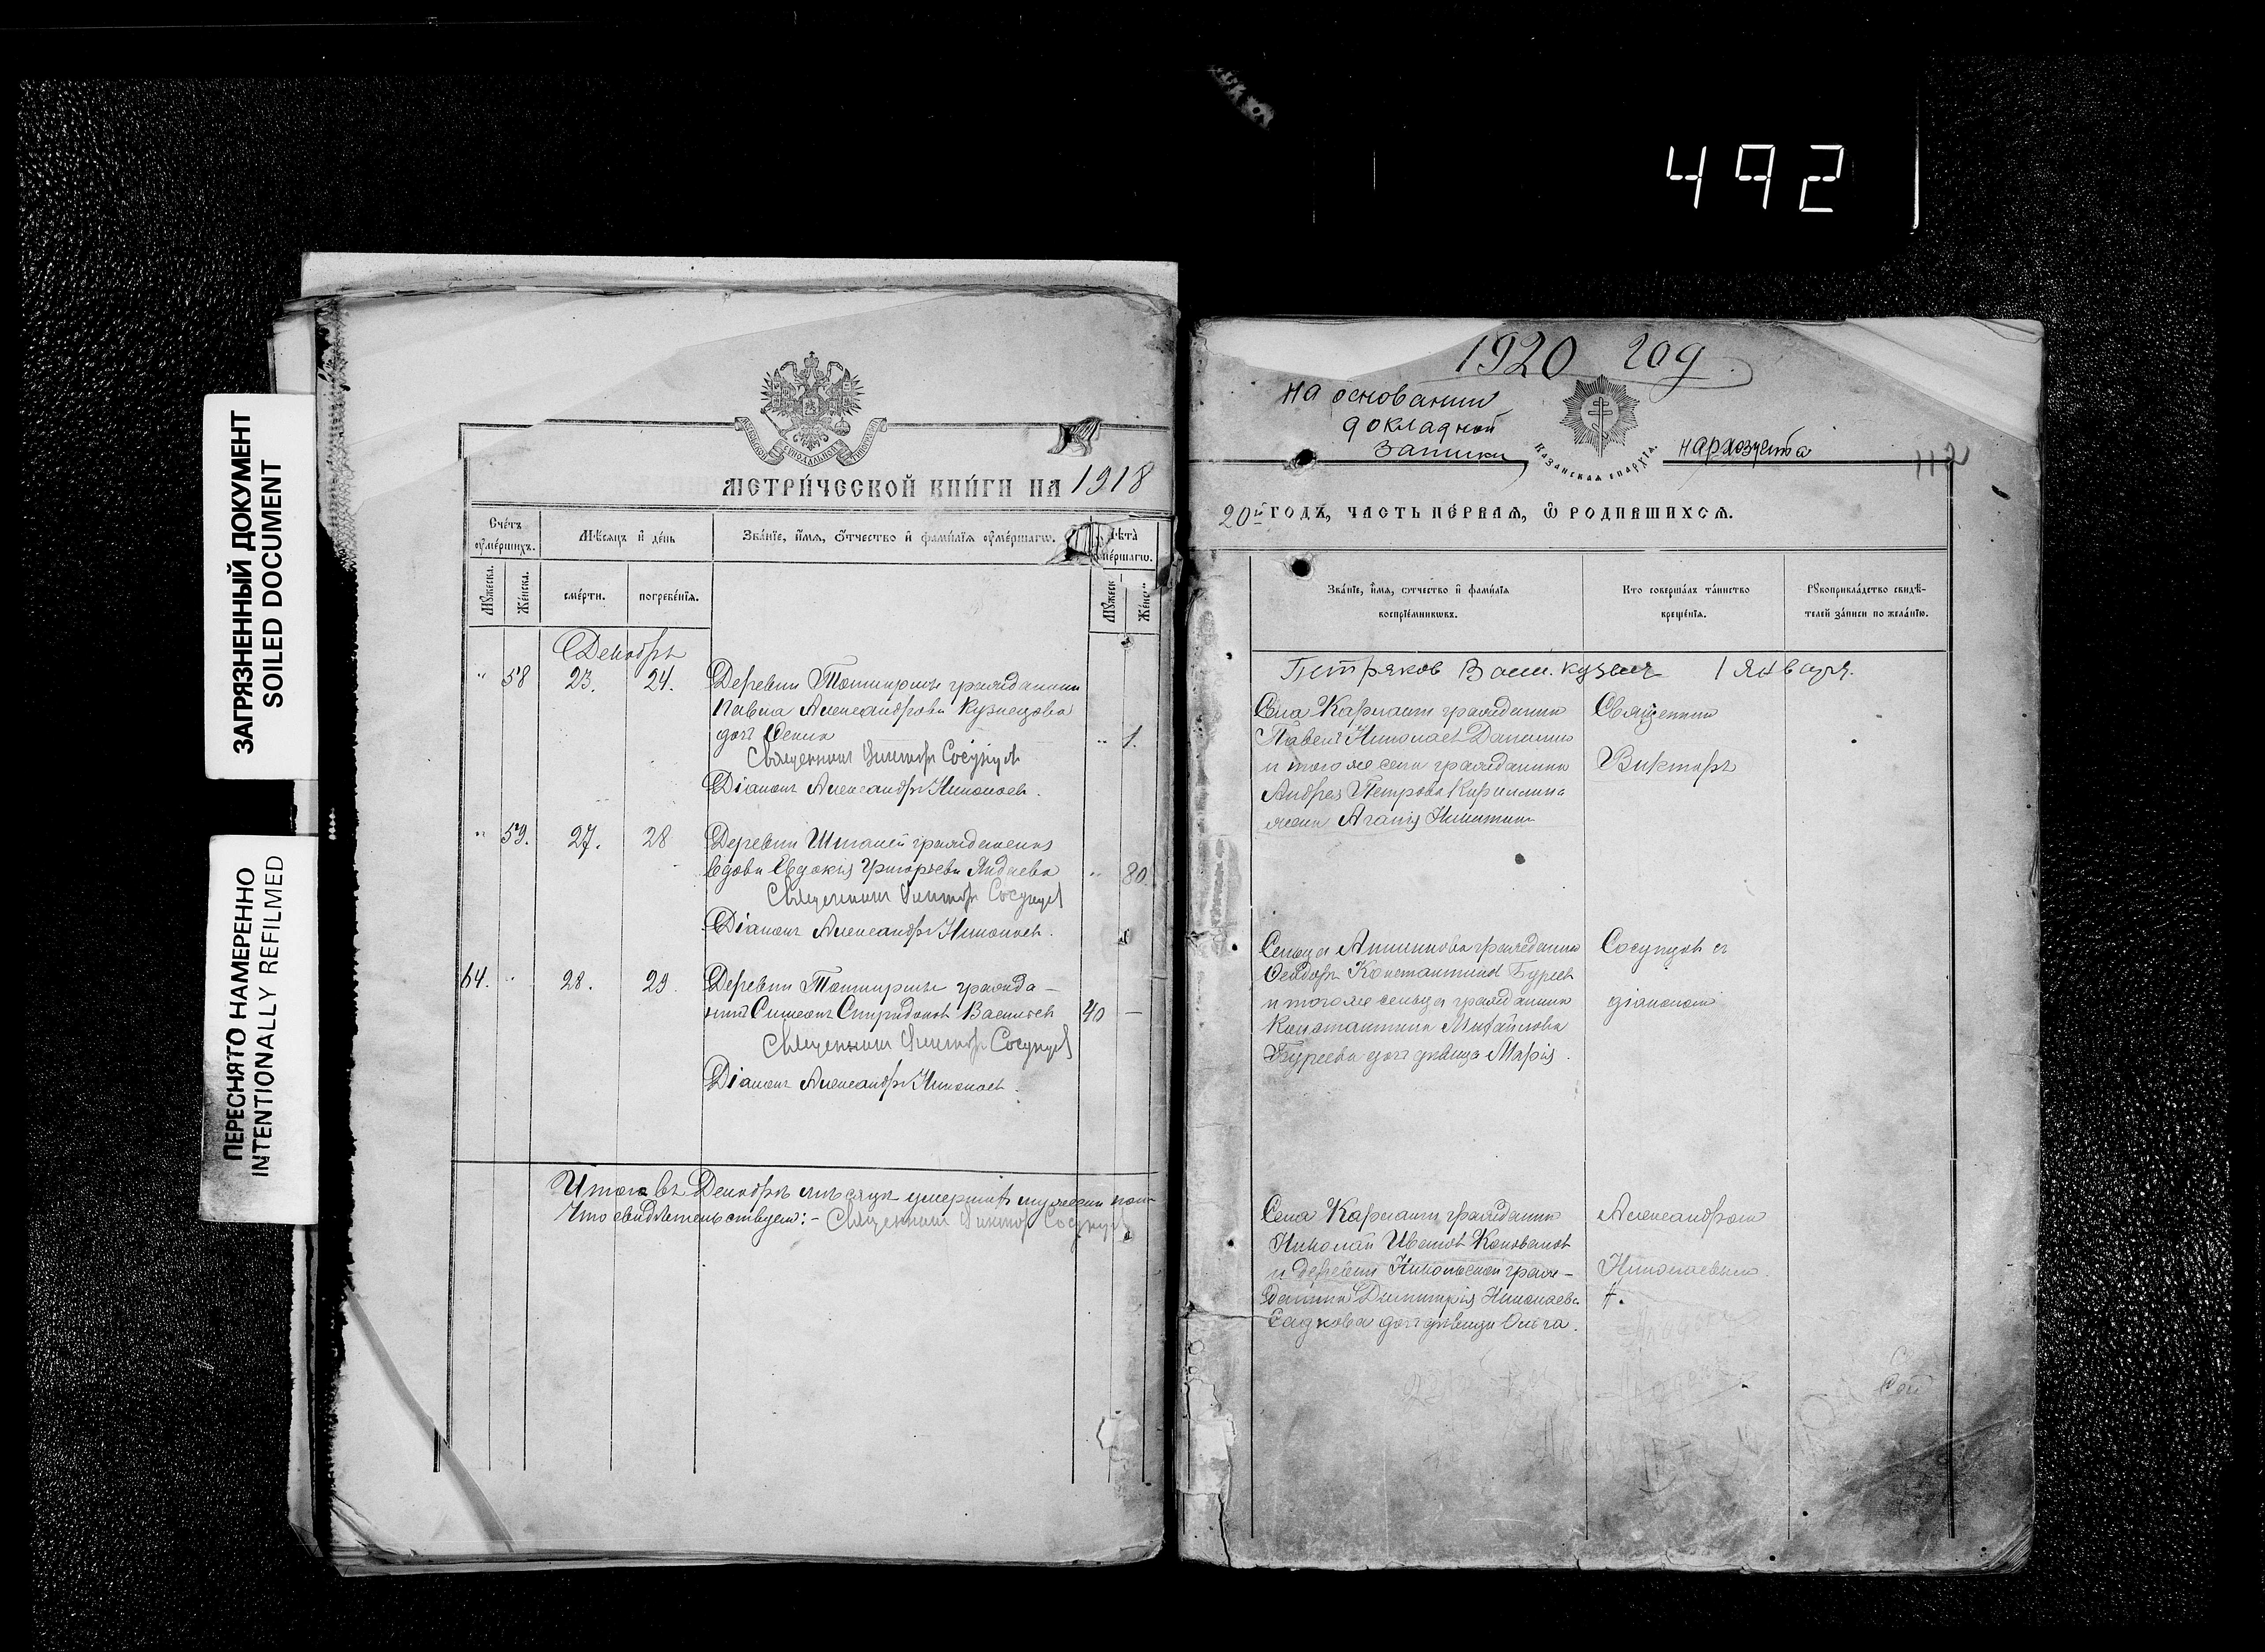 492
ЗАГРЯЗНЕННЫЙ ДОКУМЕНТ
SOILED DOCUMENT
ПЕРЕСНЯТО НАМЕРЕННО
INTENTIONALLY REFILMED
МЕТРИ́ЧЕСКОЙ КНИ́ГИ НА 1918
Сче́тъ
ᲂу҆ме́ршихъ.
Мѣ́сяцъ и҆ де́нь
Зва́нїе, и҆́мя, ѻ҆́тчество и҆ фами́лїя ᲂу҆ме́ршагѡ.
Лѣта̀
ᲂу҆ме́ршагѡ.
Мꙋ́жеска.
Же́нска.
сме́рти.
погребе́нїѧ.
Мꙋ́жеск
Же́нс
Декабрь
" 58 23. 24. Деревни Ташкирмы гражданина
Павла Александрова Кузнецова
дочь " 1.
Священник Виктор Сосунцов
Діаконъ Александръ Николаев.
" 59. 27. 28 Деревни Шигалей гражданска
вдова Евдокія Григорьева " 80.
Священник Виктор Сосунцов
Діаконъ Александръ Николаев.
64. " 28. 29. Деревни Ташкирмы гражда-
нинъ Симеонъ Спиридонов Васильев 40 —
Священник Виктор Сосунцов
Діаконъ Александръ Николаев.
Итого въ Декабрѣ мѣсяцѣ умершихъ мужеска пола
Что свидѣтельствуем:- Священник Виктор Сосунцов
1920 год.
на основании
докладной
Записки
Казанская епархїѧ.
112
20й ГОДЪ, ЧАСТЬ ПЕ́РВАѦ, Ѽ РОДИ́ВШИХСѦ.
Зва́нїе, и҆́мя, ѻ҆́тчество и҆ фами́лїя
воспрїе́мникѡвъ.
Кто̀ соверша́лъ та́инство
креще́нїѧ.
Рꙋкоприкла́дство свидѣ́-
телей за́писи по жела́нїю.
Петряков 1 января.
Села Кармыши гражданин
Павелъ Николаев Данилин
и того же села гражданина
Андрея Петрова Кириллина
жена
Священник
Викторъ
Сельца Аникинова гражданин
Феодоръ Константинов Буреев
и того же сельца гражданина
Константина Михайлова
Буреева дочь дѣвица Марія.
Сосунцов съ
діаконом
Села Кармыши гражданин
Николай Иванов Коновалов
и деревни Никольской граж-
данина Димитрія Николаева
Садкова дочь дѣвица Ольга.
Александром
Николаевым.